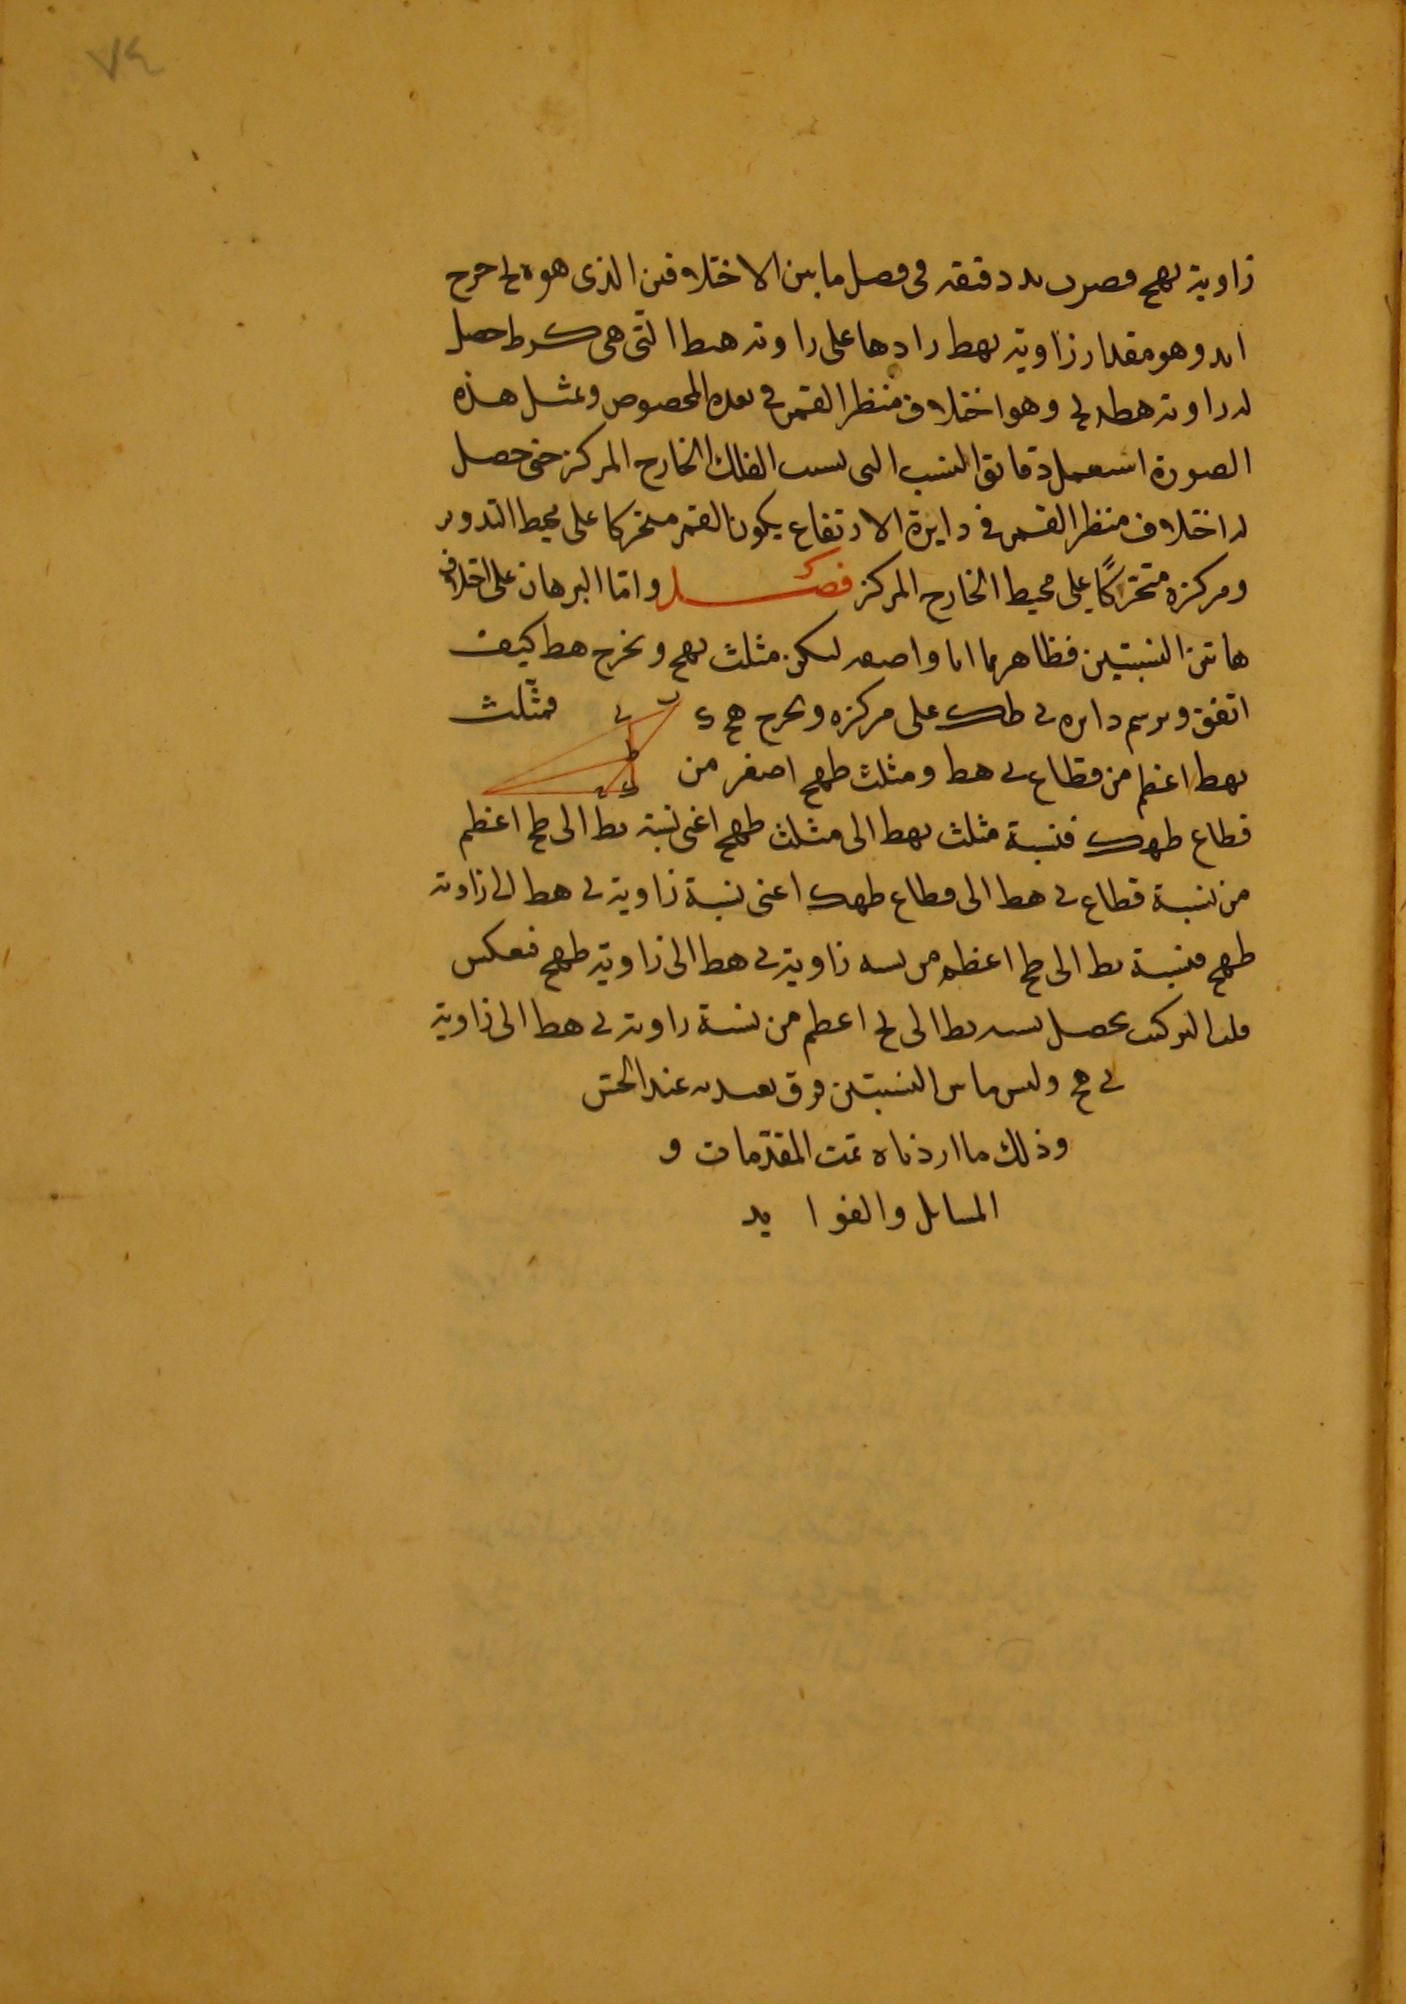 ٧٤
زاوية بهج فضرب يد دقيقة في فضل ما بين الاختلافين الذي هو
وهو مقدار زاوية بهط زادها على زاوية هط التي هي حصل
له زاوية وهو اختلاف منظر القمر في بعده المخصوص وبمثل هذه
الصورة استعمل دقائق النسب التي بسبب الفلك الخارج المركز حتى حصل
له اختلاف منظر القمر في دايرة الارتفاع يكون القمر متحركا على محيط التدوير
ومركزه متحركًا على محيط الخارج المركز فصل وامّا البرهان على اختلاف
هاتين النسبتين فظاهر مما انا واصفه ليكن مثلث بهج ونخرج هط كيف
اتفق ونرسم دايره ى طك على مركزه ه ونخرج هج ك فمثلث
بهط اعظم من قطاع ى هط ومثلث طهج اصغر من
قطاع طهك فنسبة مثلث بهط الى مثلث طهج اعنى نسبة بط الى طج اعظم
من نسبة قطاع ى هط الى قطاع طهك اعنى نسبة زاوية ى هط الى زاوية
طهج فنسبة بط الى طج اعظم من نسبة زاوية ى هط الى زاوية طهج فبعكس
التركيب يحصل نسبة بط الى اعظم من نسبة زاوية ى هط الى زاوية
ى هج وليس ما بين النسبتين فرق يعتد به عند الحسّ
وذلك ما اردناه تمت المقدّمات و
المسائل والفوايد